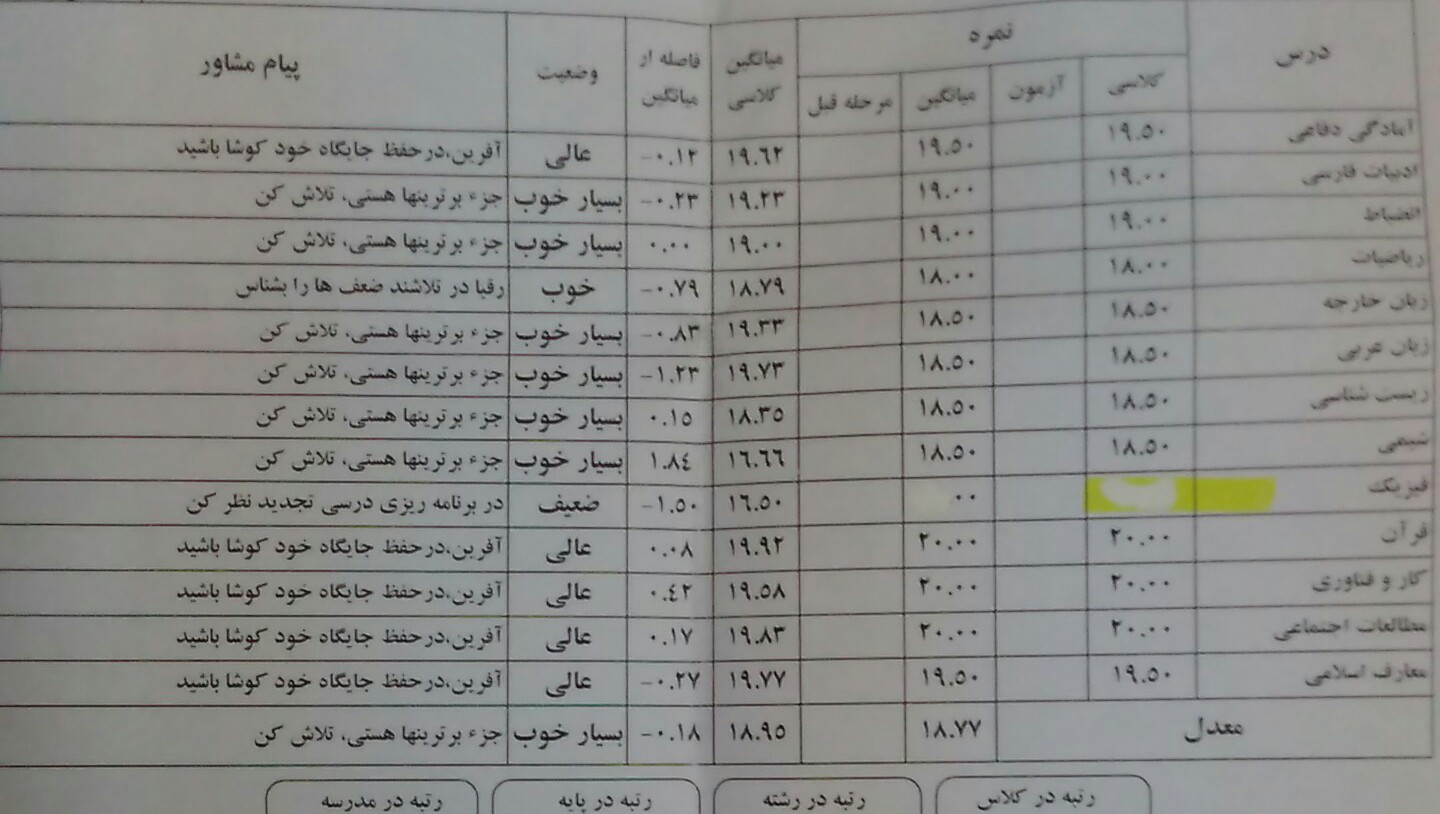 درس نمره میانگین کلاسی فاصله از میانگین وضعیت پیام مشاور
کلاسی آزمون میانگین مرحله قبل
آمادگی دفاعی ۱۹.۵۰ ۱۹.۵۰ ۱۹.۶۲ -۰.۱۲ عالی آفرین،در حفظ جایگاه خود کوشا باشید
ادبیات فارسی ۱۹.۰۰ ۱۹.۰۰ ۱۹.۲۳ -۰.۲۳ بسیار خوب جزء برترینها هستی، تلاش کن
انضباط ۱۹.۰۰ ۱۹.۰۰ ۱۹.۰۰ ۰.۰۰ بسیار خوب جزء برترینها هستی، تلاش کن
ریاضیات ۱۸.۰۰ ۱۸.۰۰ ۱۸.۷۹ -۰.۷۹ خوب رقبا در تلاشند ضعف ها را بشناس
زبان خارجه ۱۸.۵۰ ۱۸.۵۰ ۱۹.۳۳ -۰.۸۳ بسیار خوب جزء برترینها هستی، تلاش کن
زبان عربی ۱۸.۵۰ ۱۸.۵۰ ۱۹.۷۳ -۱.۲۳ بسیار خوب جزء برترینها هستی، تلاش کن
زیست شناسی ۱۸.۵۰ ۱۸.۵۰ ۱۸.۳۵ ۰.۱۵ بسیار خوب جزء برترینها هستی، تلاش کن
شیمی ۱۸.۵۰ ۱۸.۵۰ ۱۶.۶۶ ۱.۸٤ بسیار خوب جزء برترینها هستی، تلاش کن
فیزیک ۰۰ ۱۶.۵۰ -۱.۵۰ ضعیف در برنامه ریزی درسی تجدید نظر کن
قرآن ۲۰.۰۰ ۲۰.۰۰ ۱۹.۹۲ ۰.۰۸ عالی آفرین،در حفظ جایگاه خود کوشا باشید
کار و فناوری ۲۰.۰۰ ۲۰.۰۰ ۱۹.۵۸ ۰.٤۲ عالی آفرین،در حفظ جایگاه خود کوشا باشید
مطالعات اجتماعی ۲۰.۰۰ ۲۰.۰۰ ۱۹.۸۳ ۰.۱۷ عالی آفرین،در حفظ جایگاه خود کوشا باشید
معارف اسلامی ۱۹.۵۰ ۱۹.۵۰ ۱۹.۷۷ -۰.۲۷ عالی آفرین،در حفظ جایگاه خود کوشا باشید
معدل ۱۸.۷۷ ۱۸.۹۵ -۰.۱۸ بسیار خوب جزء برترینها هستی، تلاش کن
رتبه در کلاس رتبه در رشته رتبه در پایه رتبه در مدرسه